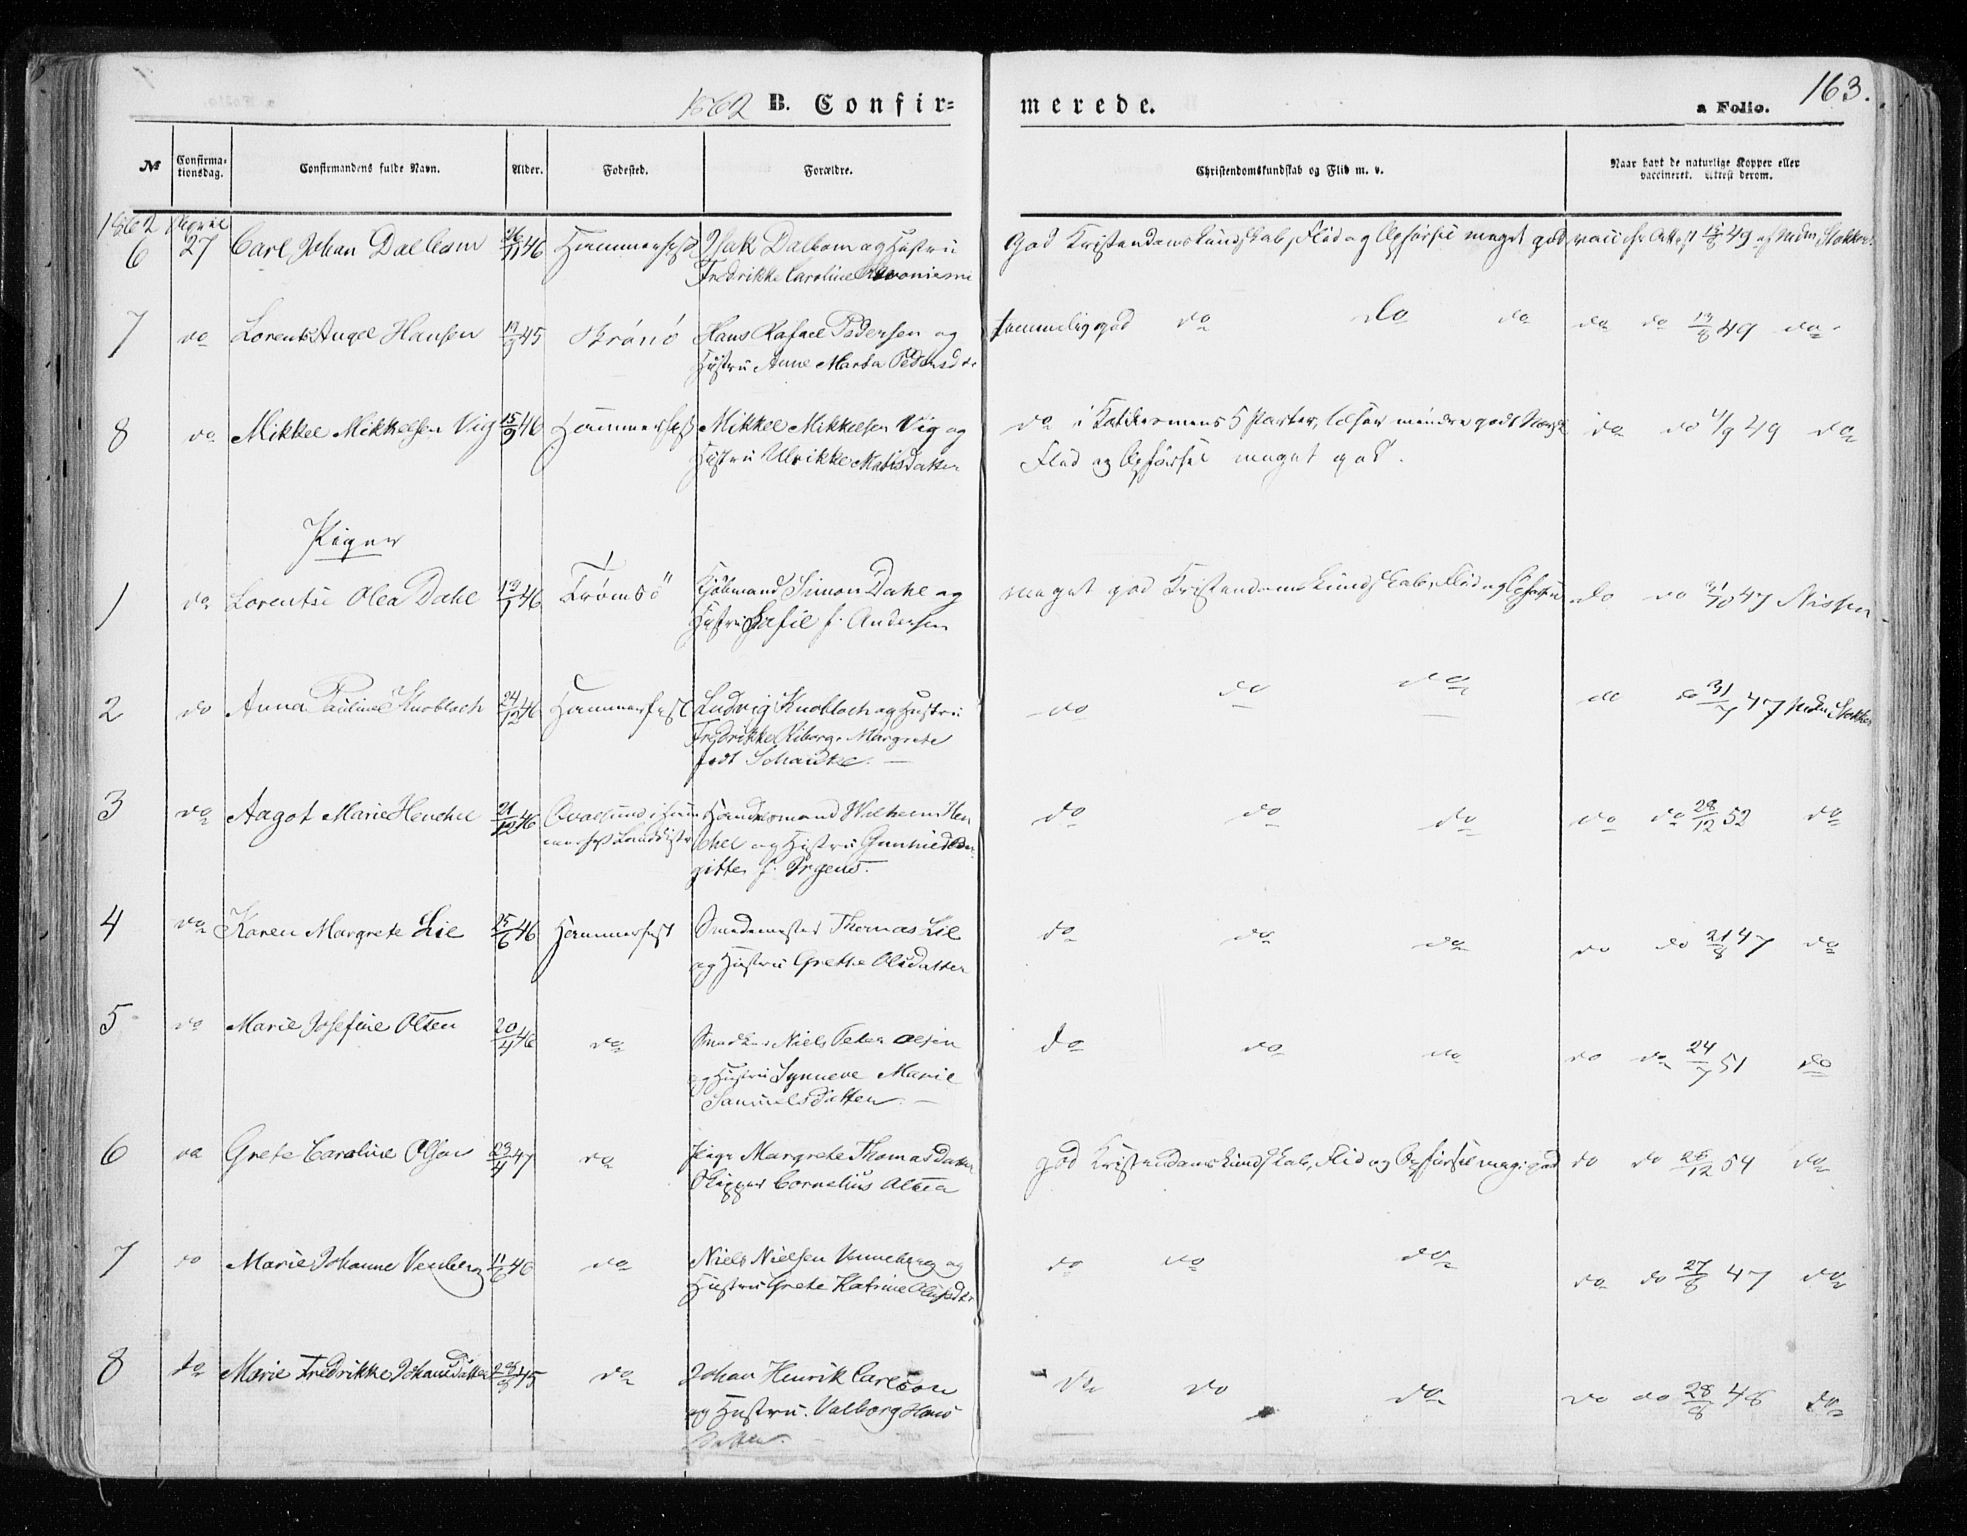 1862 B. Confir= merede. a Folio. 163.
No Confirma=tionsdag. Confirmandens fulde Navn. Alder. Fødested. Forældre. Christendomskundskab og Flid m. v. Naar havt de naturlige Kopper eller vaccineret. Attest derom.
1862 April
6 27 Carl Johan Dalbom 26/11 46 Hammerfest Isak Dalbom og Hustru God Kristendomskundskab, Flid og Opførsel meget god vacc. ifr Attest 18/8 49 af Stokker
Fredrikke Caroline
7 do Lorents Angel Hansen 45 Hans Rafael Pedersen og temmelig god do do do do do 49 do
Hustru Anne Marta Pedersdtr
8 do Mikkel Mikkelsen Vig 15/9 46 Hammerfest Mikkel Mikkelsen Vig og do i Katekismens 5 Parter, læser mindre godt Norsk do do 1/9 49 do
Hustru Ulrikke Matisdatter Flid og Opførsel meget god.
Piger
1 do Lorentse Olea Dahl 13/1 46 Tromsö Kjøbmand Simon Dahl og meget god Kristendomskundskab, Flid og Opførsel do do 31/10 47 Nissen
Hustru Sofie f. Andersen
2 do Anna Pauline Knobloch 24/12 46 Hammerfest Ludvig Knobloch og Hustru do do do do do 31/7 47 Stokker
Fredrikke Riborg Margrete
født Schanche.
3 do Aagot Marie Henchel 21/12 46 Qvalsund i Ham Handelsmand Wilhelm Hen do do do do do 28/12 52 do
merfest Landdistr chel og Hustru Gunhild Bir
gitte f. Irgens.
4 do Karen Margrete Lie 25/6 46 Hammerfest Smedemester Thomas Lie do do do do do 21/8 47 do
og Hustru Grethe Olsdatter
5 do Marie Josefine Olsen 20/4 46 do Niels Peter Olsen do do do do do 24/7 51 do
og Hustru Synneve Marie
Samuelsdatter.
6 do Grete Caroline Olsen 23/4 47 do Pige Margrete Thomasdatter god Kristendomskundskab, Flid og Opførsel meg. god do do 26/12 54 do
Skipper Cornelius Olsen
7 do Marie Johanne Venberg 11/6 46 do Niels Nielsen Venneberg og do do do do do 27/8 47 do
Hustru Grete Katrine
8 do Marie Fredrikke Johansdatter 45 do Johan Henrik Carlson do do do do do 28/8 48 do
og Hustru Valborg Hans
datter.